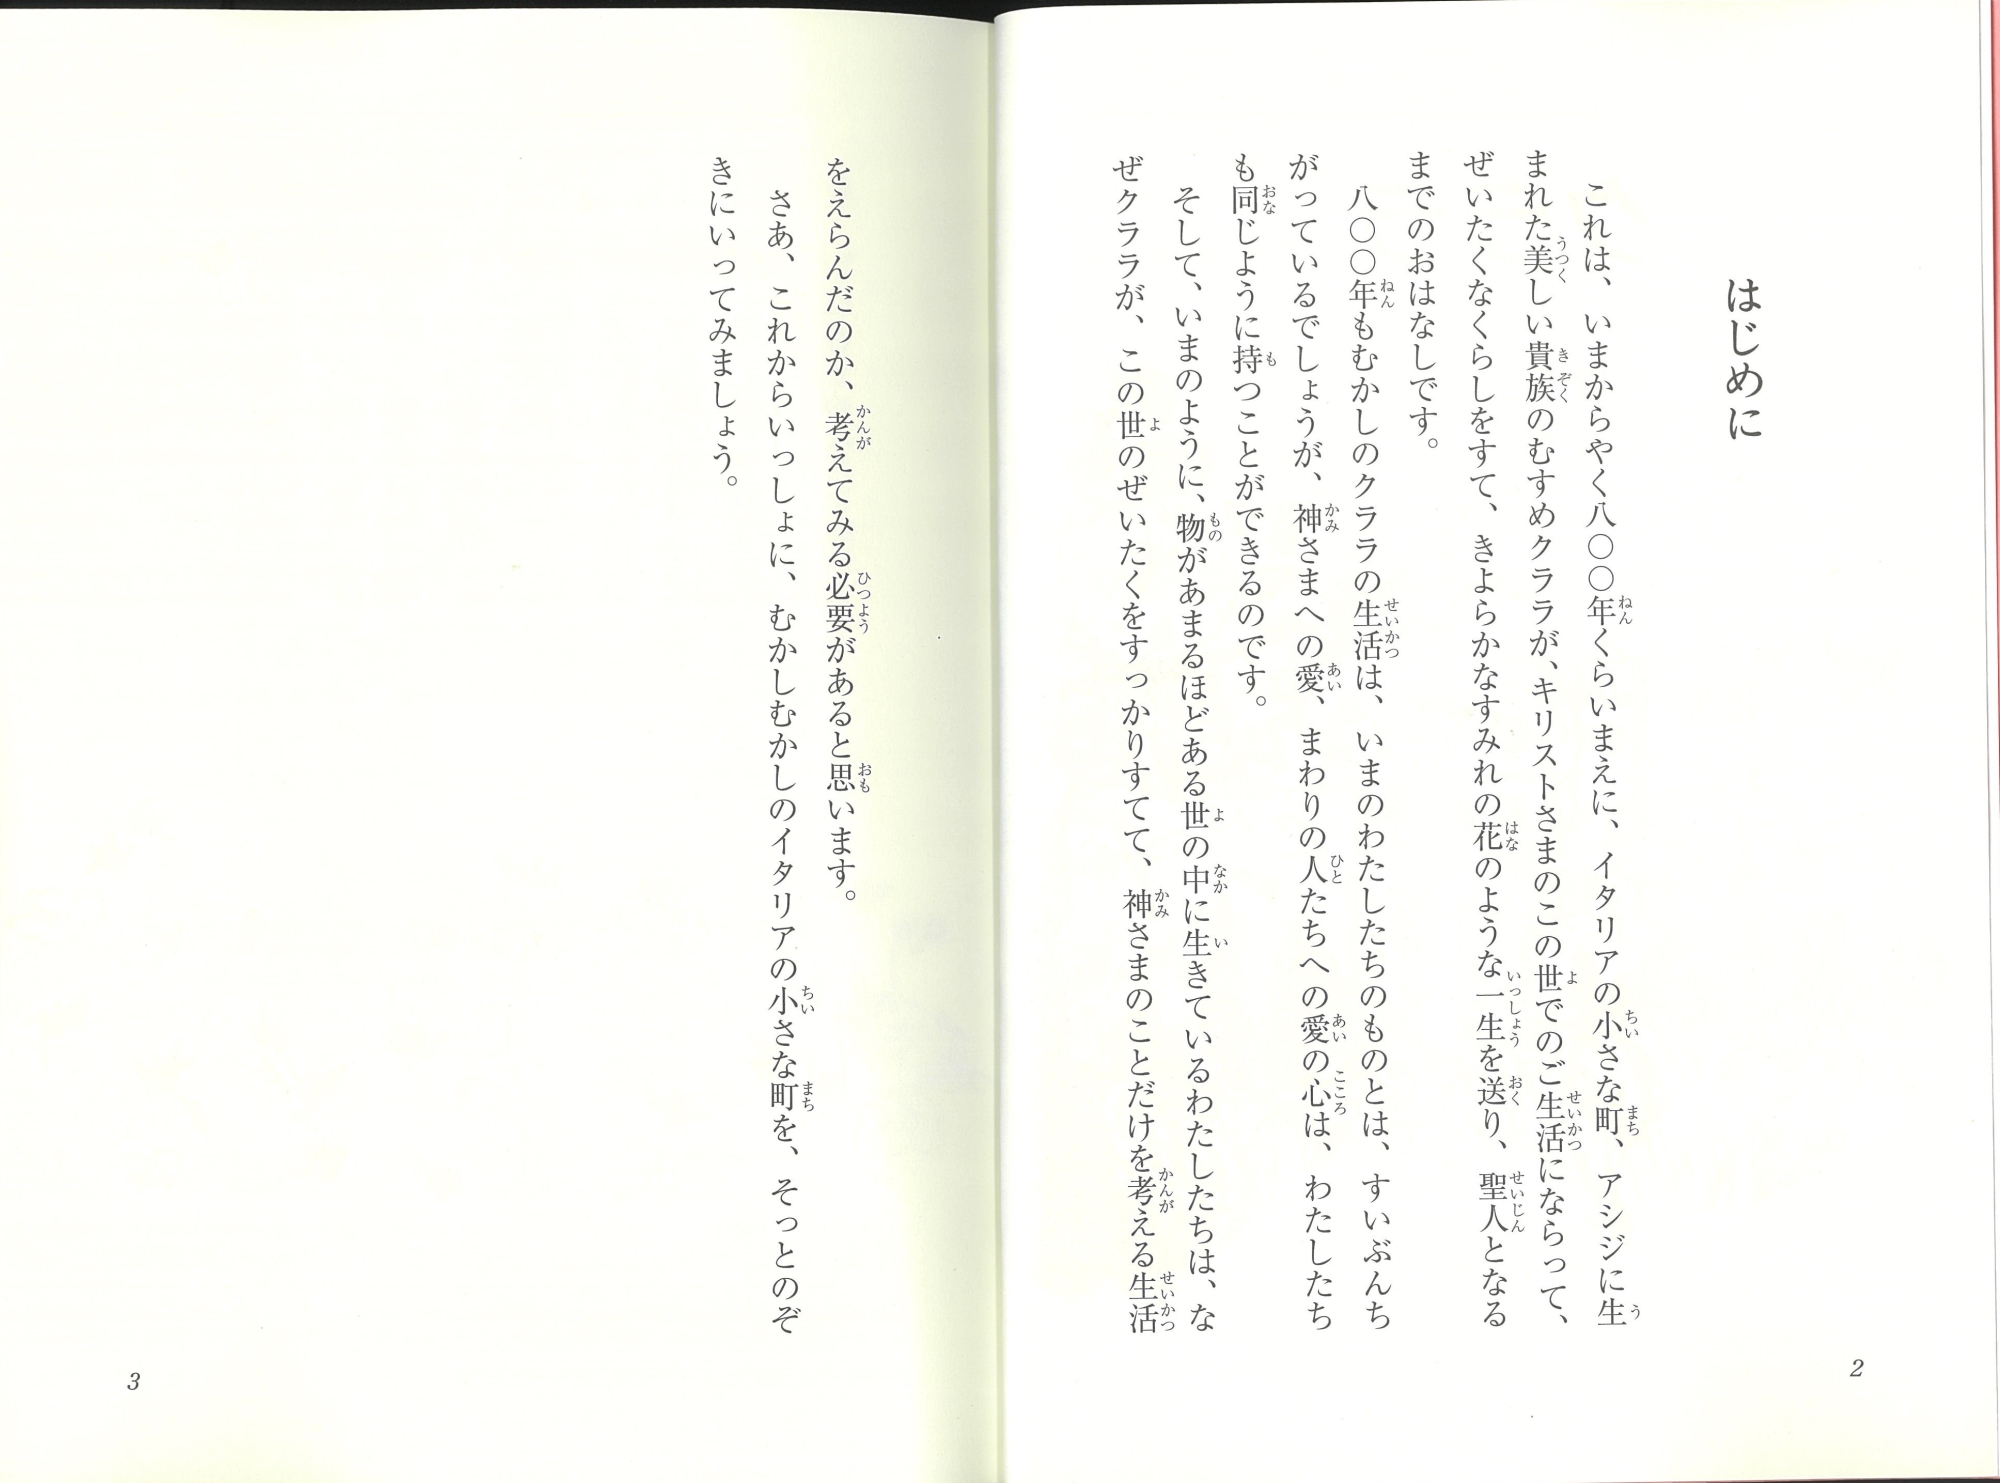 はじめに
これは、いまからやく八〇〇年くらいまえに、イタリアの小さな町、アシジに生
まれた美しい貴族のむすめクララが、キリストさまのこの世でのご生活にならって、
ぜいたくなくらしをすて、きよらかなすみれの花のような一生を送り、聖人となる
までのおはなしです。
八〇〇年もむかしのクララの生活は、いまのわたしたちのものとは、すいぶんち
がっているでしょうが、神さまへの愛、まわりの人たちへの愛の心は、わたしたち
も同じように持つことができるのです。
そして、いまのように、物があまるほどある世の中に生きているわたしたちは、な
ぜクララが、この世のぜいたくをすっかりすてて、神さまのことだけを考える生活
2
をえらんだのか、考えてみる必要があると思います。
さあ、これからいっしょに、むかしむかしのイタリアの小さな町を、そっとのぞ
きにいってみましょう。
3